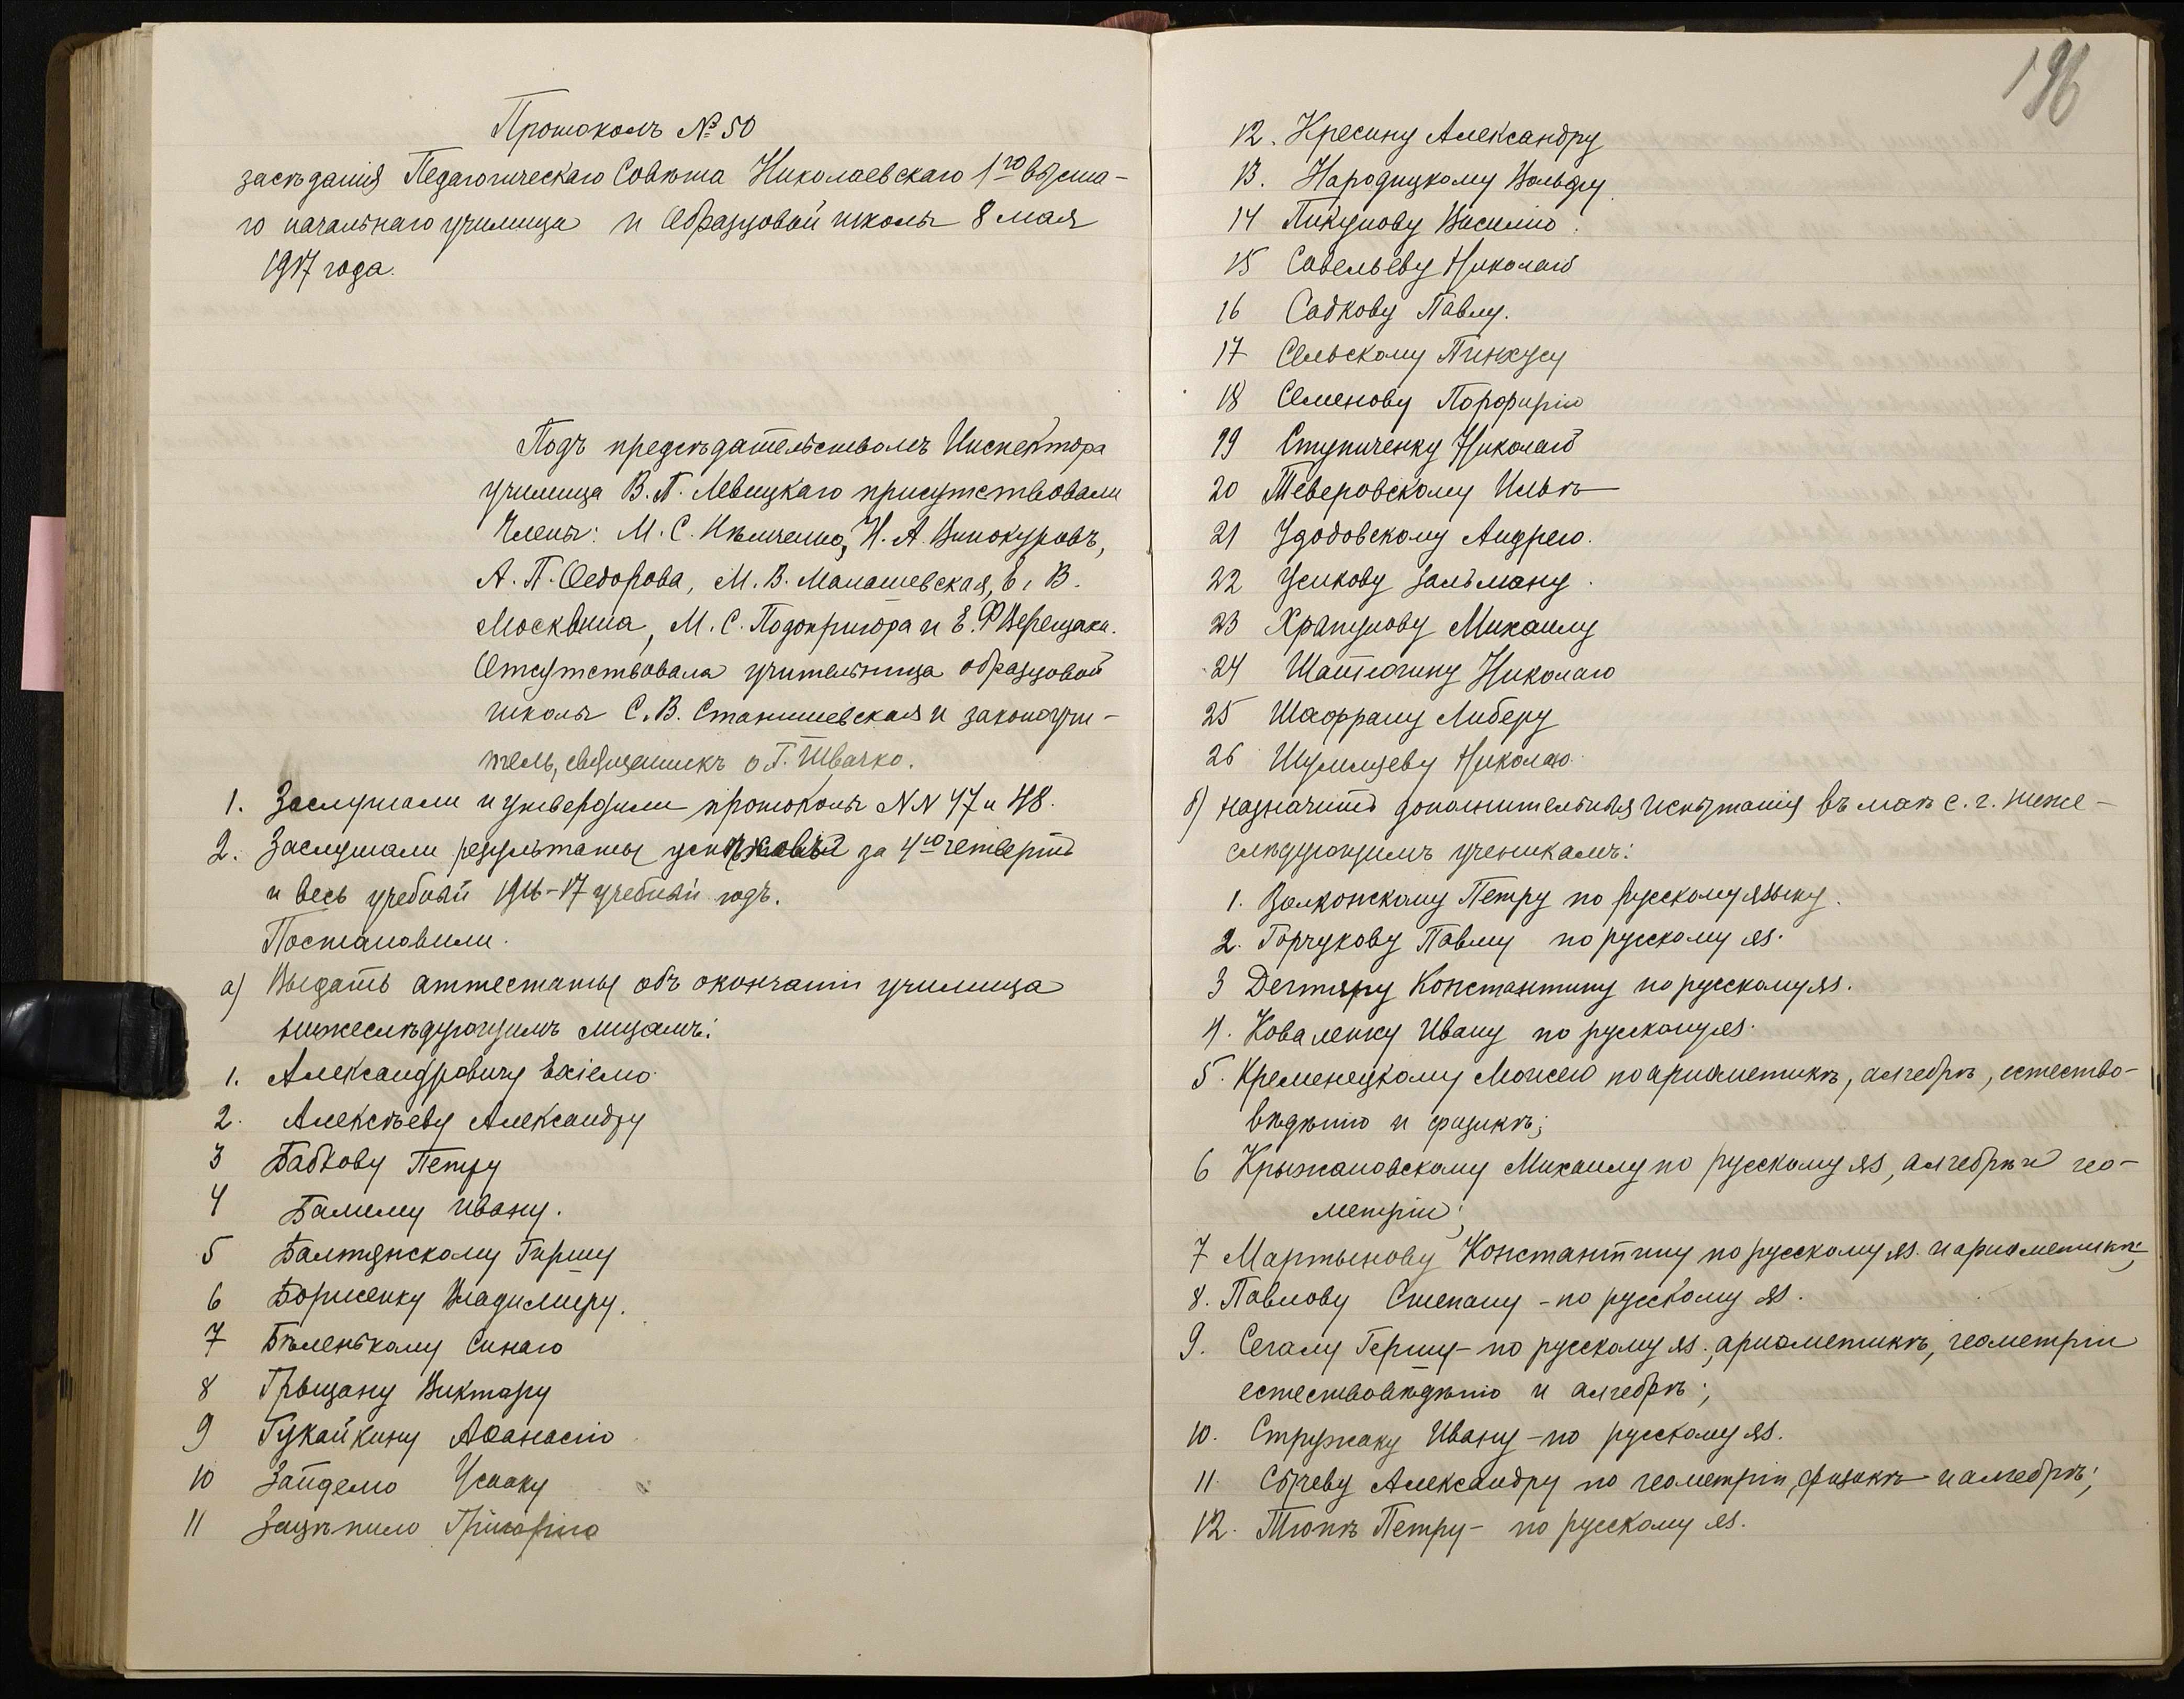 Протоколъ № 50
засѣданія Педагогическаго Совѣта Николаевскаго 1го высша-
го начальнаго училища и Образцовой школы 8 мая
1917 года.
Подъ предсѣдательствомъ Инспектора
училища В. П. Левицкаго присутствовали
Члены: М. С. Ильченко, Н. А. Винокуровъ,
А. П. Ѳедорова, М. В. Малашевская, Е. В.
Москвина, М. С. Подопригора и Е. Ф. Верещака.
Отсутствовала учительница образцовой
школы С. В. Станишевская и законоучи-
тель, священникъ о Г. Швачко.
1. Заслушали и утвердили протоколы NN 47 и 48.
2. Заслушали результаты за 4ю четверть
и весь учебный 1916-17 учебный годъ.
Постановили.
а) Выдать аттестаты объ окончаніи училища
нижеслѣдующимъ лицамъ:
1. Александровичу Ехіелю
2. Алексѣеву Александру
3 Бабкову Петру
4 Ивану.
5 Балтянскому Гиршу
6 Борисенку Владимиру.
7 Бѣленькому Синаю
8 Грыцану Виктору
9 Гукайкину Аѳанасію
10 Зайделю Усааку
11 Зацѣпило Григорію
196
12. Кресину Александру
13. Народицкому Вольфу
14 Пикунову Василію.
15 Савельеву Николаю
16 Садкову Павлу.
17 Сельскому Пинкусу
18 Семенову Порфирію
19 Ступиченку Николаю
20 Теверовскому Ильѣ
21 Удодовскому Андрею.
22 Усикову Зальману.
23 Храпунову Михаилу
24 Николаю
25 Шафрану Либеру
26 Шумилцеву Николаю
б) назначить дополнительныя испытанія въ маѣ с. г. ниже-
слѣдующимъ ученикамъ:
1. Волконскому Петру по русскому языку.
2. Горчукову Павлу по русскому яз.
3 Дегтяру Константину по русскому яз.
4. Коваленку Ивану по русскому яз.
5. Кременецкому Моисею по ариѳметикѣ, алгебрѣ, естество-
вѣдѣнію и физикѣ;
6 Крыжановскому Михаилу по русскому яз, алгебрѣ и гео-
метріи;
7 Мартынову Константину по русскому яз. и ариѳметикѣ;
8. Павлову Степану - по русскому яз.
9. Сегалу Гершу - по русскому яз., ариѳметикѣ, геометріи
естествовѣдѣнію и алгебрѣ;
10. Стружаку Ивану - по русскому яз.
11. Сычеву Александру по геометріи, физикѣ и алгебрѣ;
12. Тюпѣ Петру - по русскому яз.